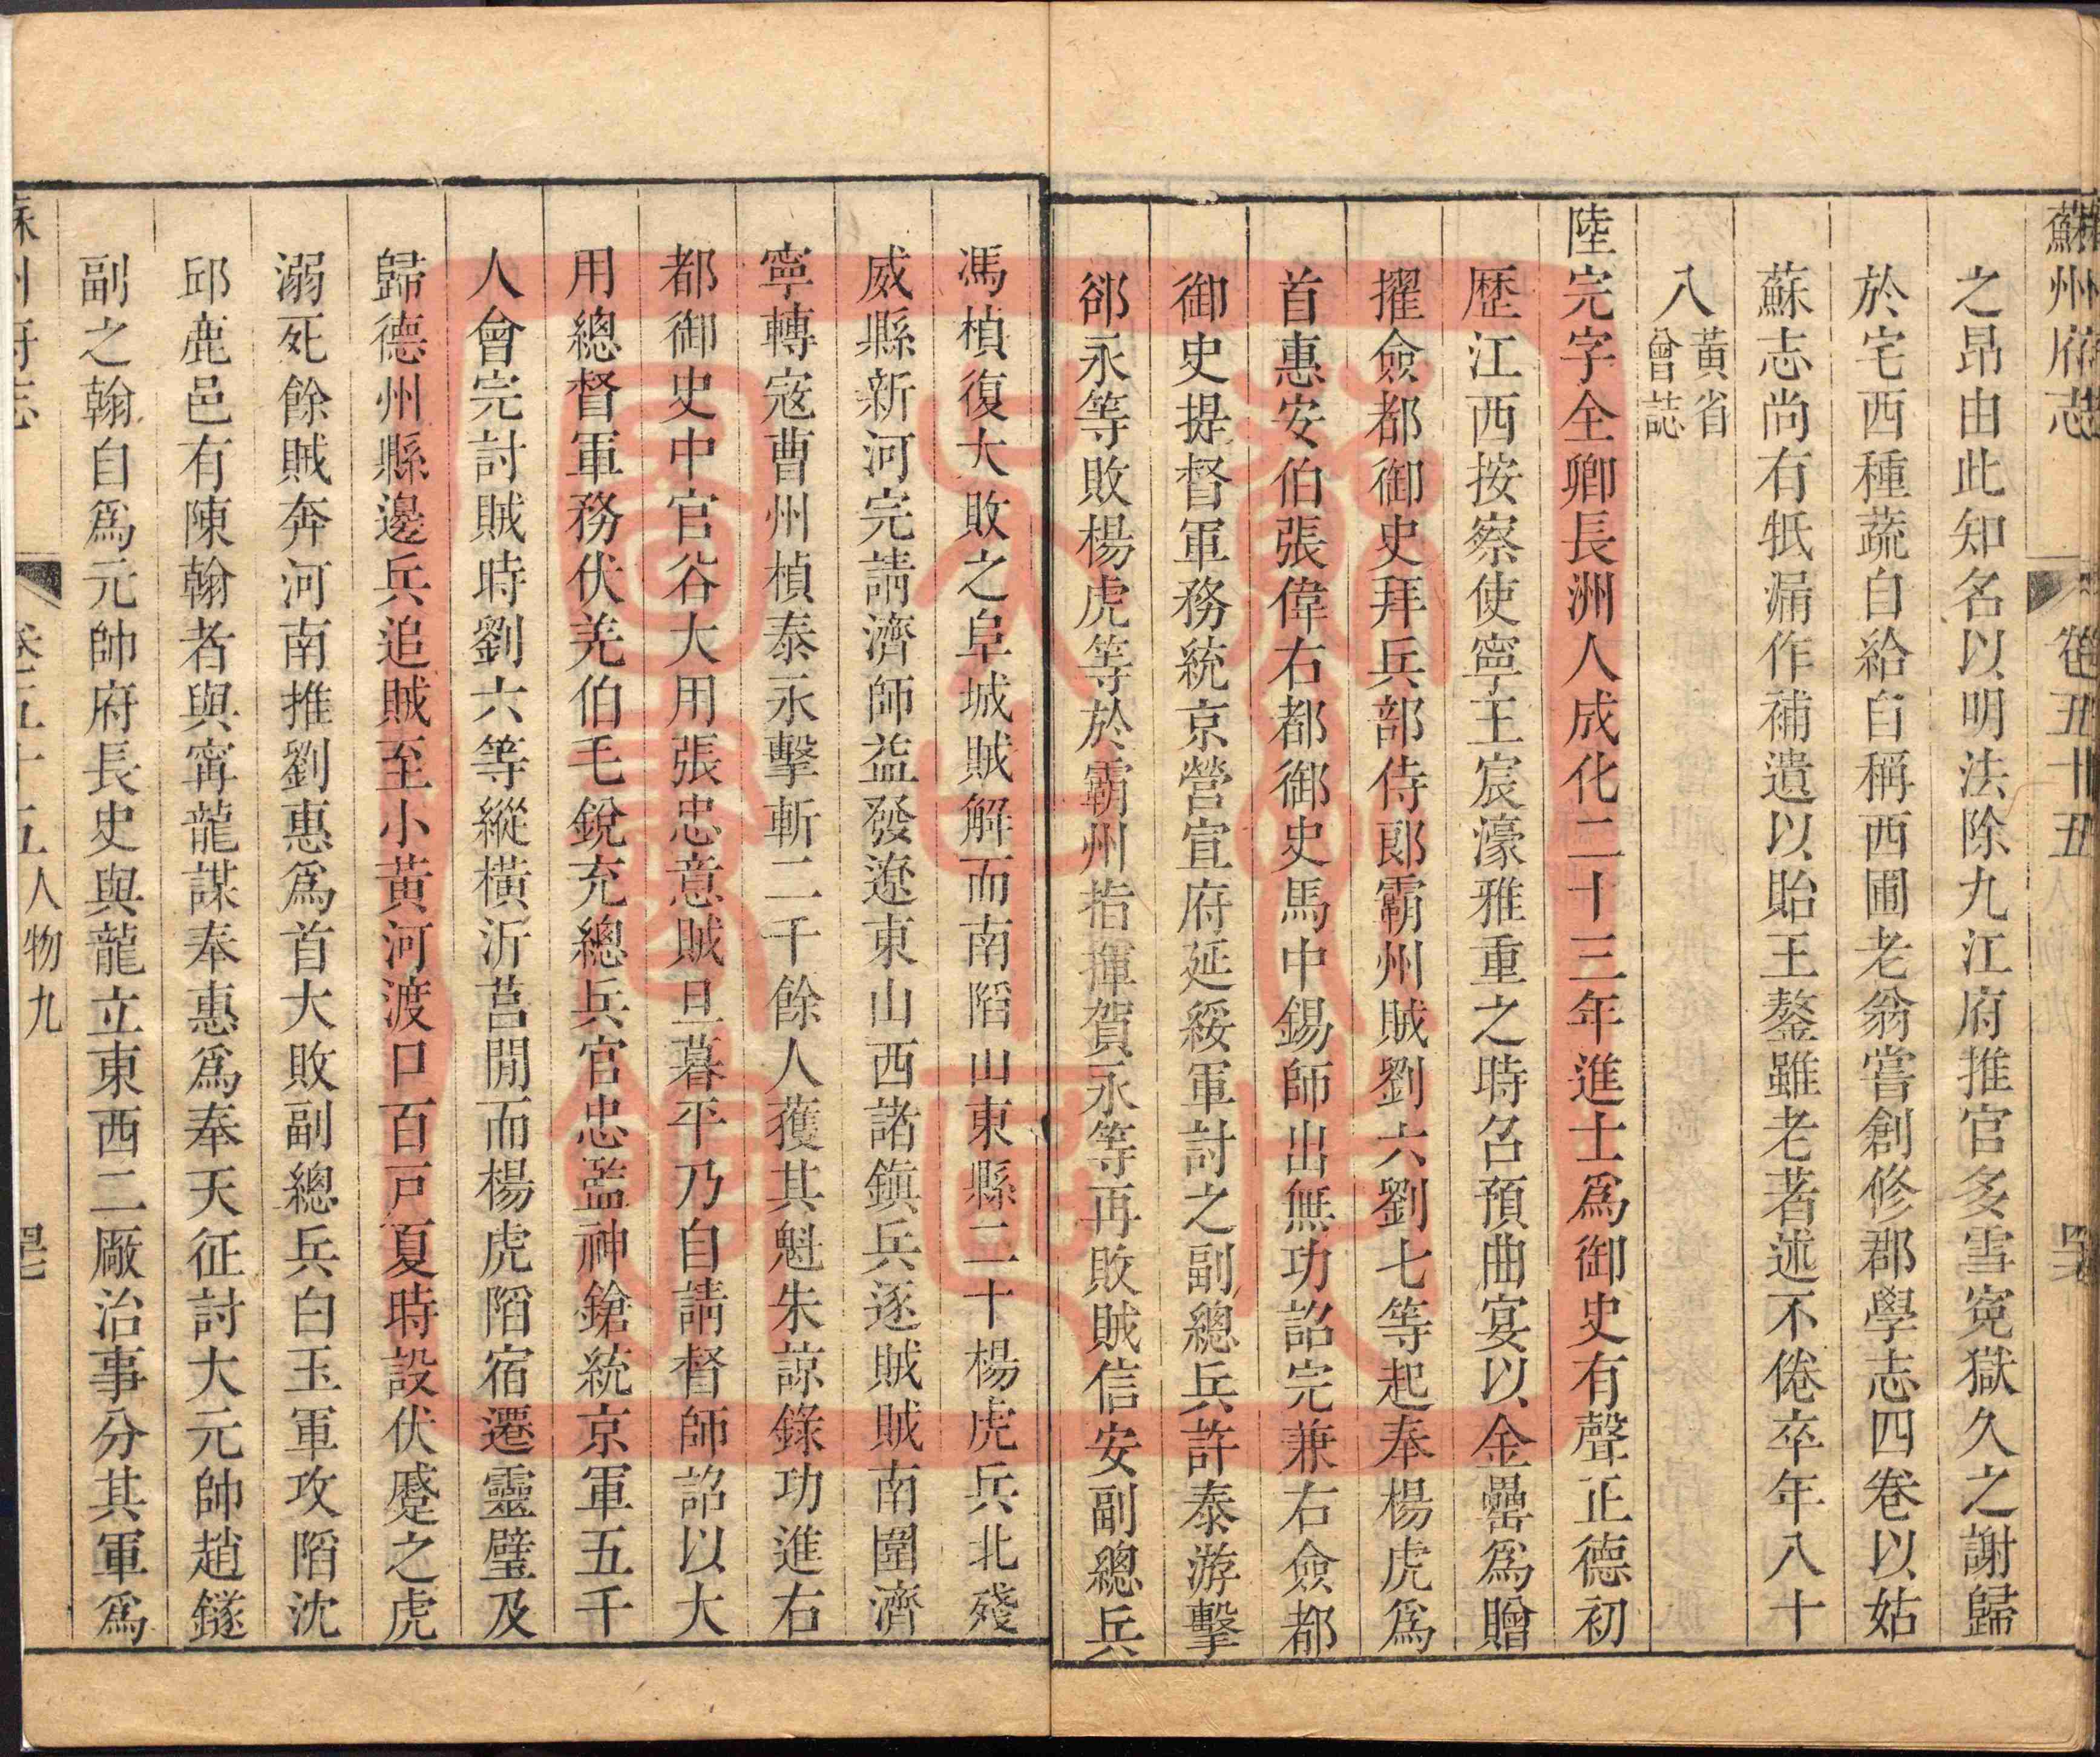 蘇州府志 卷五十五
之昂由此知名以明法除九江府推官多雪寃獄久之謝歸
於宅西種蔬自給自稱西圃老翁嘗創修郡學志四卷以姑
蘇志尚有牴漏作補遺以貽王鏊雖老著述不倦卒年八十
八黃省曾誌
陸完字全卿長洲人成化二十三年進士爲御史有聲正德初
歷江西按察使寧王宸濠雅重之時召預曲宴以金罍爲贈
擢僉都御史拜兵部侍郎霸州賊劉六劉七等起奉楊虎爲
首惠安伯張偉右都御史馬中錫師出無功詔完兼右僉都
御史提督軍務統京營宣府延綏軍討之副總兵許泰游擊
郤永等敗楊虎等於霸州指揮賀永等再敗賊信安副總兵
馮楨復大敗之阜城賊解而南䧟山東縣二十楊虎兵北殘
威縣新河完請濟師益發遼東山西諸鎭兵逐賊賊南圍濟
寧轉寇曹州楨泰永擊斬二千餘人獲其魁朱諒錄功進右
都御史中官谷大用張忠意賊旦暮平乃自請督師詔以大
用總督軍務伏羌伯毛銳充總兵官忠監神鎗統京軍五千
人會完討賊時劉六等縱橫沂莒閒而楊虎䧟宿遷靈璧及
歸德州縣邊兵追賊至小黃河渡口百戸夏時設伏蹙之虎
溺死餘賊奔河南推劉惠爲首大敗副總兵白玉軍攻䧟沈
邱鹿邑有陳翰者與寗龍謀奉惠爲奉天征討大元帥趙鐩
副之翰自爲元帥府長史與龍立東西二厰治事分其軍爲
蘇州府志 卷五十五 人物九